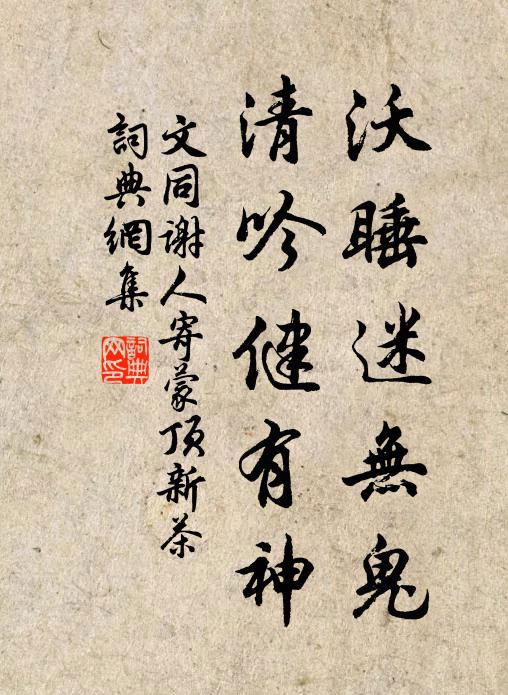 沃睡迷無鬼
清吟健有神
文同謝人寄蒙頂新茶
詞典網集
詞典網印